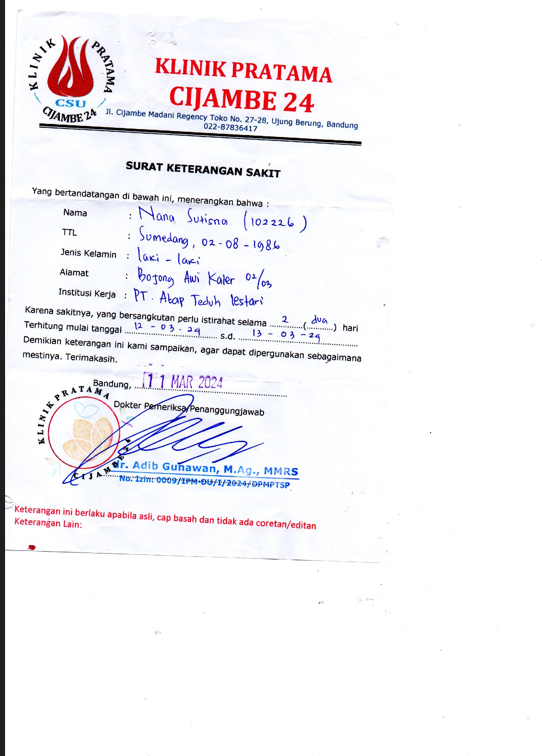 KLINIK PRATAMA
CSU
CIJAMBE 24
KLINIK PRATAMA
CIJAMBE 24
Jl. Cijambe Madani Regency Toko No. 27-28, Ujung Berung, Bandung
022-87836417
SURAT KETERANGAN SAKIT
Yang bertandatangan di bawah ini, menerangkan bahwa :
Nama : Nana Sutisna (102226)
TTL : Sumedang, 02-08-1986
Jenis Kelamin : laki - laki
Alamat : Bojong Awi Kaler 02/03
Institusi Kerja : PT. Atap Teduh lestari
Karena sakitnya, yang bersangkutan perlu istirahat selama 2 (dua) hari
Terhitung mulai tanggal 12 - 03 - 24 s.d. 13 - 03 - 24
Demikian keterangan ini kami sampaikan, agar dapat dipergunakan sebagaimana
mestinya. Terimakasih.
Bandung, 11 MAR 2024
Dokter Pemeriksa/Penanggungjawab
KLINIK PRATAMA
CIJAMBE 24
dr. Adib Gunawan, M.Ag., MMRS
No. Izin: 0009/IPM-DU/I/2024/DPMPTSP
Keterangan ini berlaku apabila asli, cap basah dan tidak ada coretan/editan
Keterangan Lain: